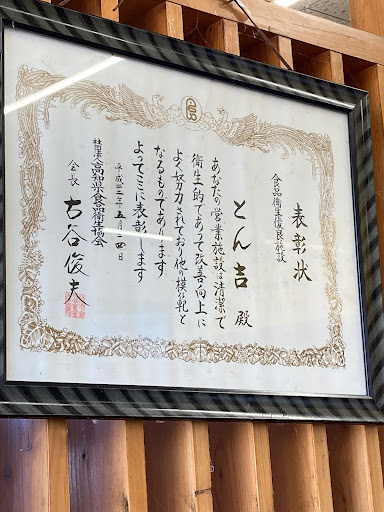 表彰状
食品衛生優良施設
とん吉 殿
あなたの営業施設は清潔で
衛生的であって改善向上に
よく努力されており他の模範と
なるものであります
よってここに表彰します
平成三年五月 四日
社団法人高知県食品衛生協会
会長 古谷俊夫